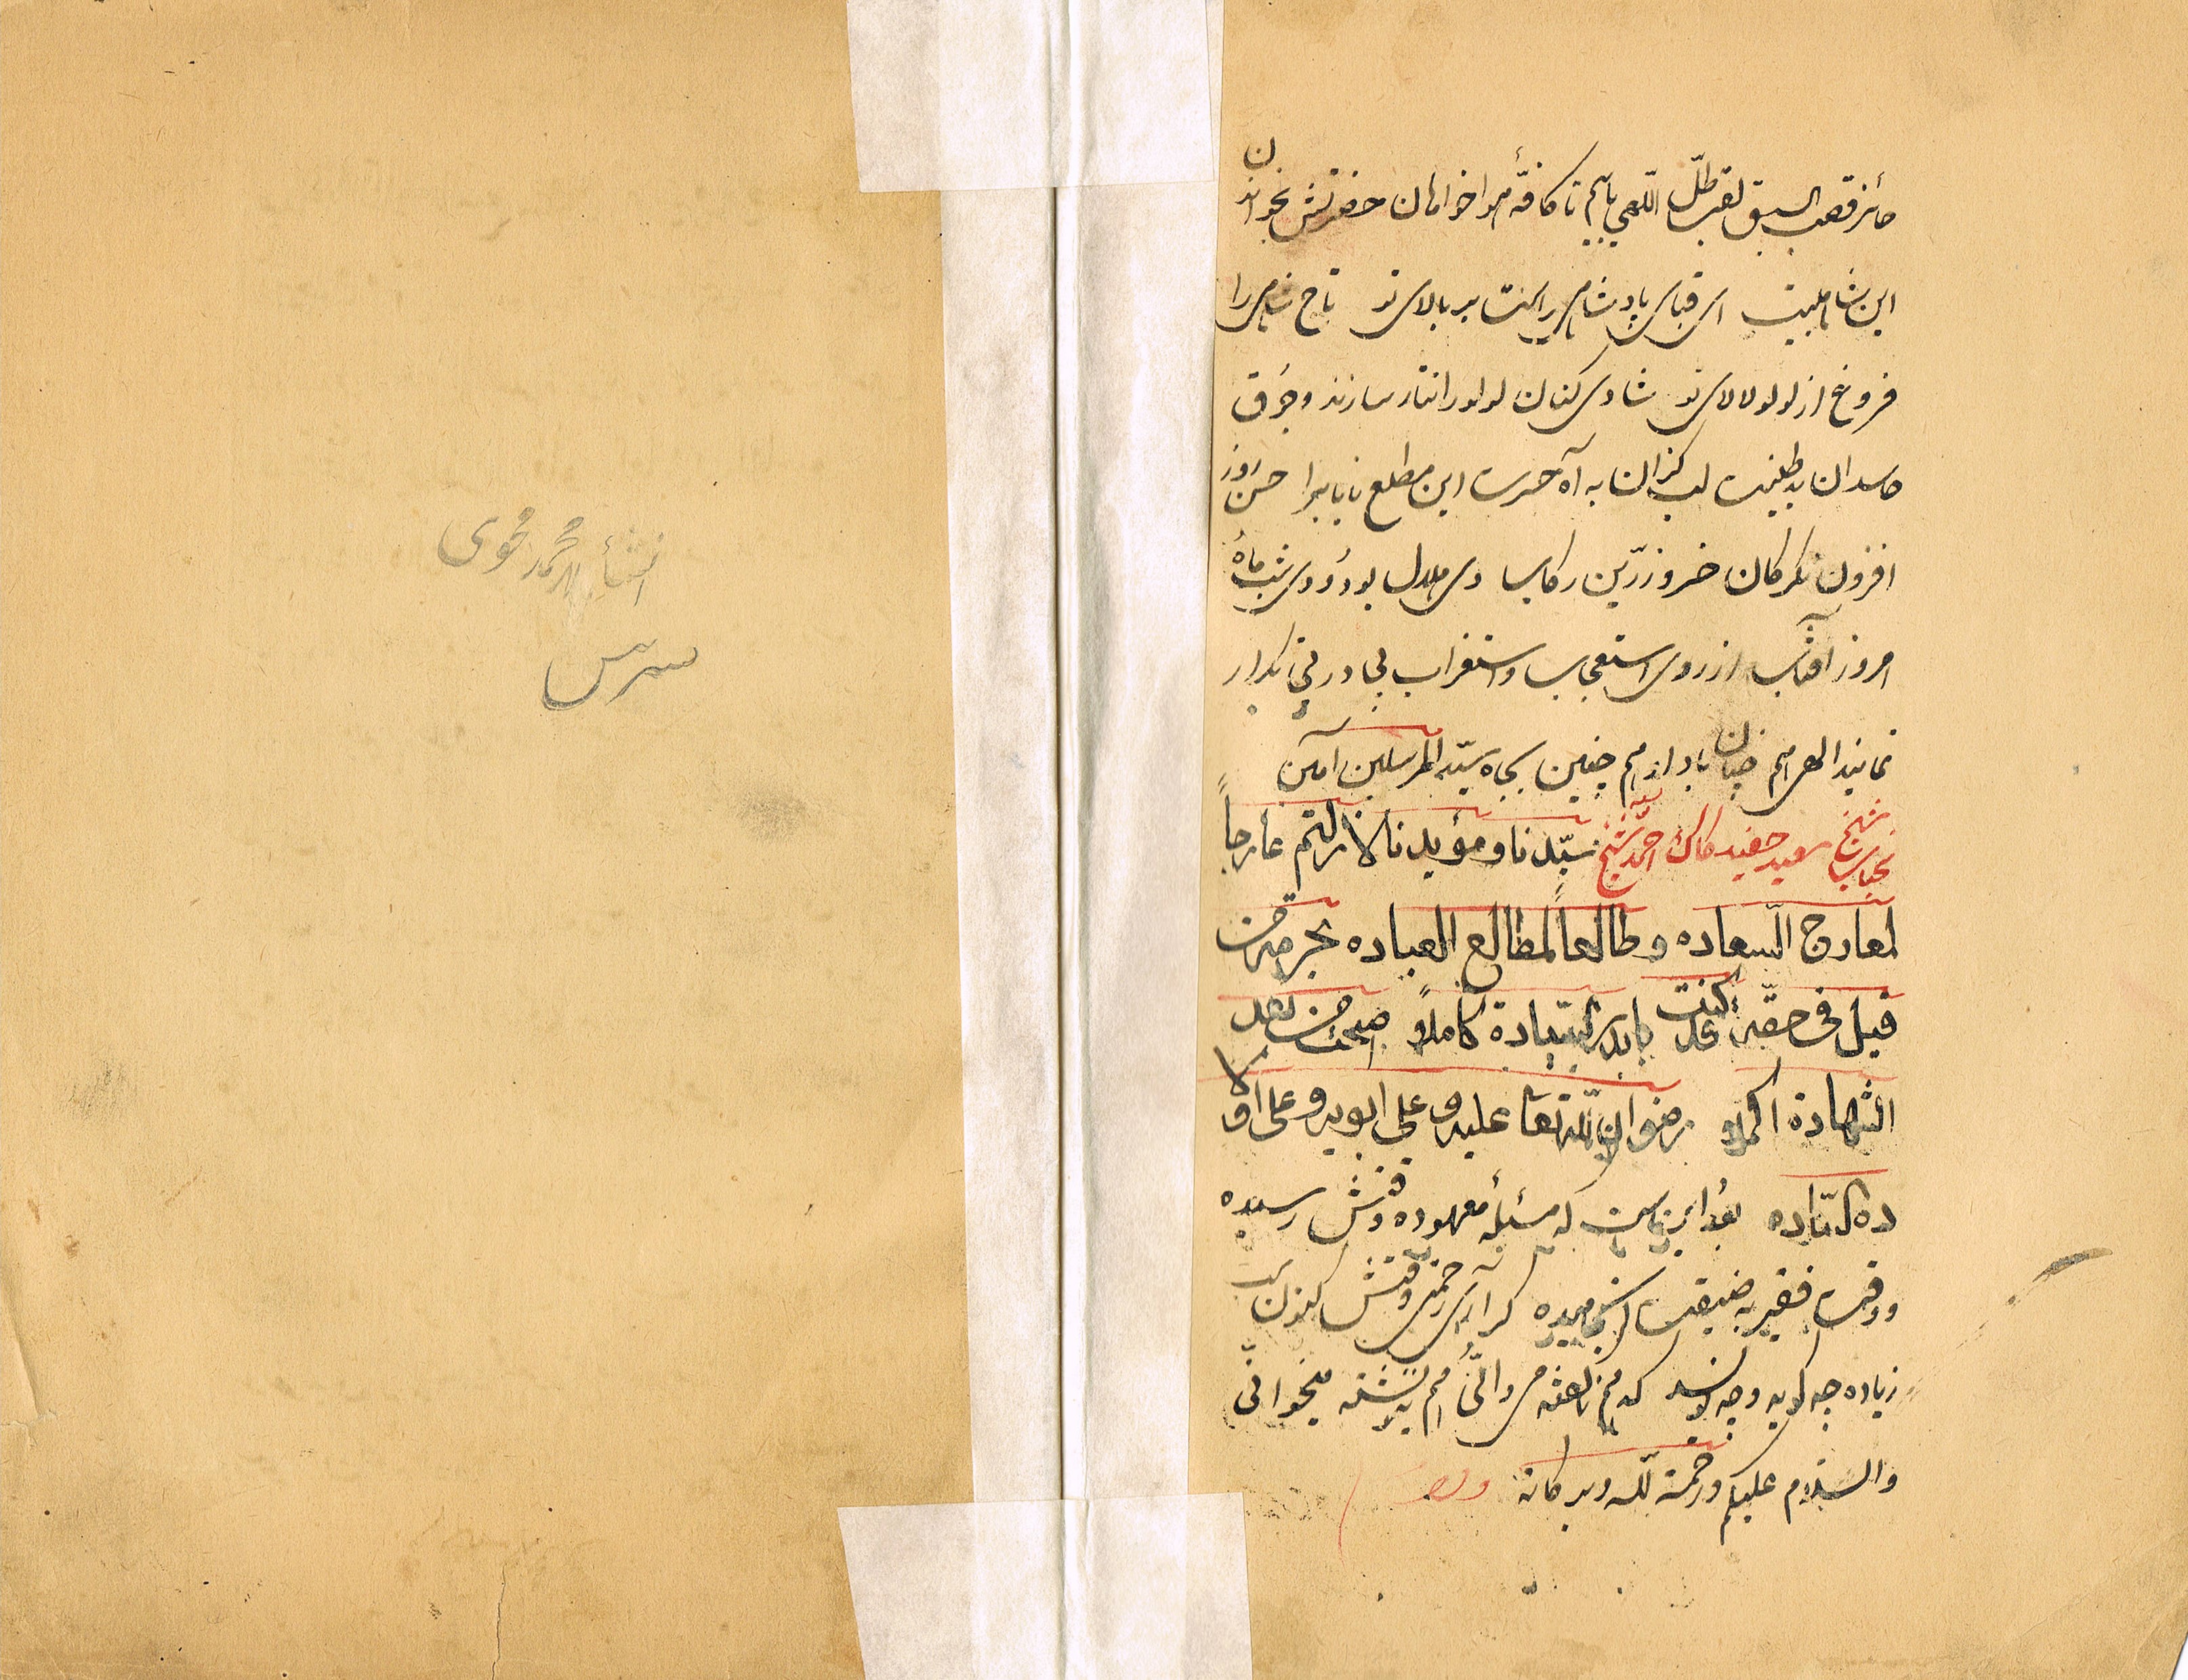 حائز قصب السبق لقب ظلّ اللهی یابیم تا کافّهٔ هواخواهان حضرتش بخوانند
این شاه بیت ای قبای پادشاهی راست بر بالای تو تاج شاهی را
فروغ از لولو لالای تو شادی کنان لولو را نثار سازند و جوق
حاسدان بد طینت لب گزان به آه حسرت این مطلع را حسن روز
افزون نگر کان خسرو زرّین رکاب دی هلال بود و دوش ماه
امروز آفتاب از روی استعجاب و استغراب پی در پی تکرار
نمایند الهی هم چنان باد و هم چنین بجاه سیّد المرسلین آمین
بجناب شیخ سعید حفید کاک احمد شیخ سیّدنا و مؤیدنا لا زلتم عارجاً
لمعارج السّعاده و طالعاً لمطالع العباده بحرمة من
قیل فی حقّه قد کنت بابدر السّیادة کاملاً اصبحت من بعد
الشهادة اکملا رضوان الله تعا علیه و علی ابویه و علی اولا
ده السّاده بعد این است که مسئلهٔ معهوده وقتش رسیده
و وقت فقیر به ضیقت انجامیده گر آری رحمتی وقتش کنون است
زیاده چه گوید وچه نویسد که هم ناگفته می دانی هم ننوشته میخوانی
والسّلام علیکم ورحمة الله وبرکاته
انشأ محمد محوی
سرس